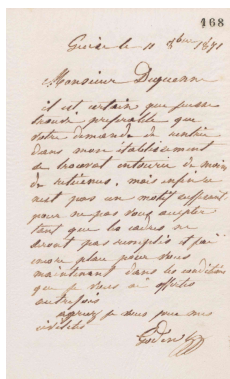 468
Guise le 11 8bre 1871
Monsieur Duquenne
il est certain que j'eusse
trouvé préférable que
votre demande de rentrée
dans mon établissement
se trouvat entourée de moins
de retenues, mais enfin ce
n'est pas un motif suffisant
pour ne pas vous accepter
tant que les cadres ne
seront pas remplis et j'ai
encore place pour vous
maintenant dans les conditions
que je vous ai offertes
autrefois
agréez je vous prie mes
civilités
Godin